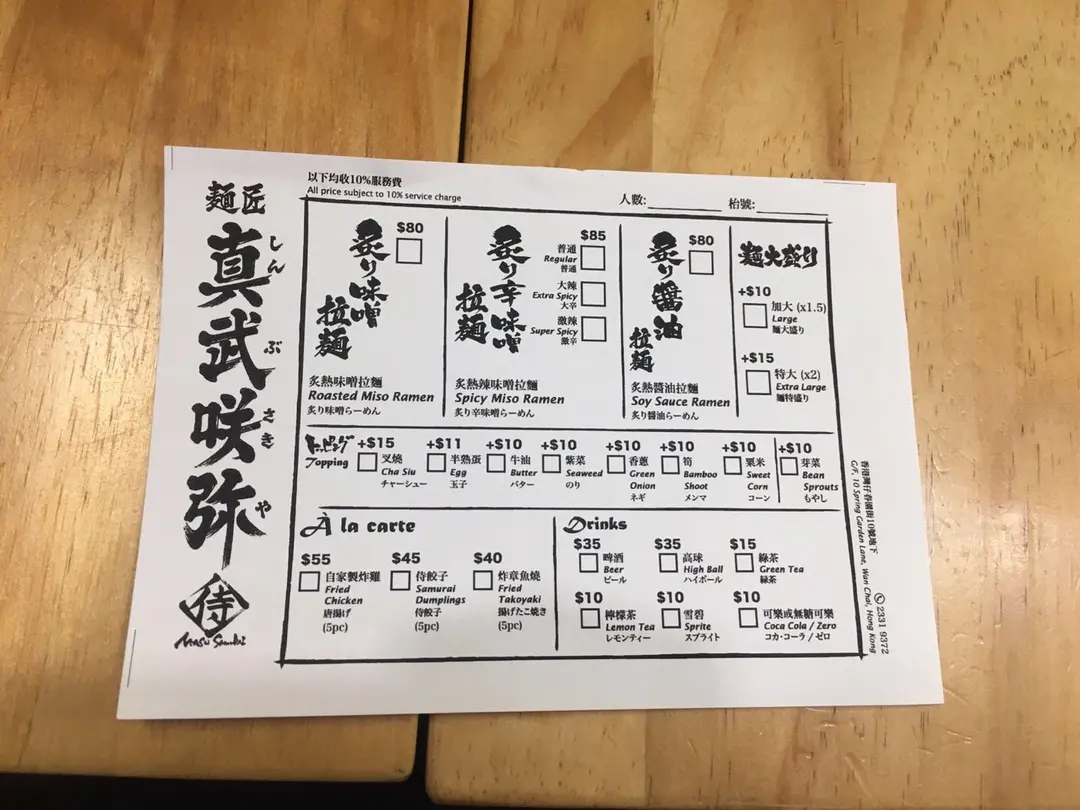 麺匠
真武咲弥
しんぶさきや
侍
以下均收10%服務費
All price subject to 10% service charge
人數:
枱號:
炙り味噌
拉麺
$80
炙熱味噌拉麵
Roasted Miso Ramen
炙り味噌らーめん
炙り辛味噌
拉麺
$85
普通
Regular
普通
大辣
Extra Spicy
大辛
激辣
Super Spicy
激辛
炙熱辣味噌拉麵
Spicy Miso Ramen
炙り辛味噌らーめん
炙り醤油
拉麺
$80
炙熱醬油拉麵
Soy Sauce Ramen
炙り醤油らーめん
麺大盛り
+$10
加大 (x1.5)
Large
麺大盛り
+$15
特大 (x2)
Extra Large
麺特盛り
トッピング
Topping
+$15
叉燒
Cha Siu
チャーシュー
+$11
半熟蛋
Egg
玉子
+$10
牛油
Butter
バター
+$10
紫菜
Seaweed
のり
+$10
香蔥
Green
Onion
ネギ
+$10
筍
Bamboo
Shoot
メンマ
+$10
粟米
Sweet
Corn
コーン
+$10
芽菜
Bean
Sprouts
もやし
À la carte
$55
自家製炸雞
Fried
Chicken
唐揚げ
(5pc)
$45
侍餃子
Samurai
Dumplings
侍餃子
(5pc)
$40
炸章魚燒
Fried
Takoyaki
揚げたこ焼き
(5pc)
Drinks
$35
啤酒
Beer
ビール
$35
高球
High Ball
ハイボール
$15
綠茶
Green Tea
緑茶
$10
檸檬茶
Lemon Tea
レモンティー
$10
雪碧
Sprite
スプライト
$10
可樂或無糖可樂
Coca Cola / Zero
コカ・コーラ / ゼロ
香港灣仔春園街10號地下
G/F, 10 Spring Garden Lane, Wan Chai, Hong Kong
2331 9372